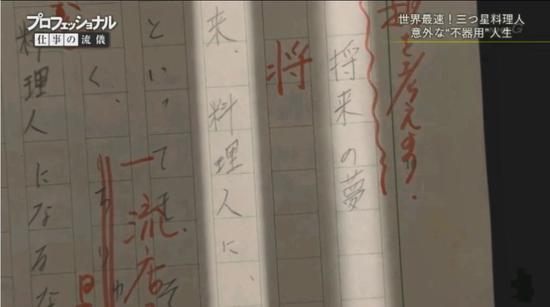 プロフェッショナル
仕事の流儀
世界最速!三つ星料理人
意外な“不器用”人生
将来の夢
将
来、料理人に、
といっても
一流店
く、
料理人になるな